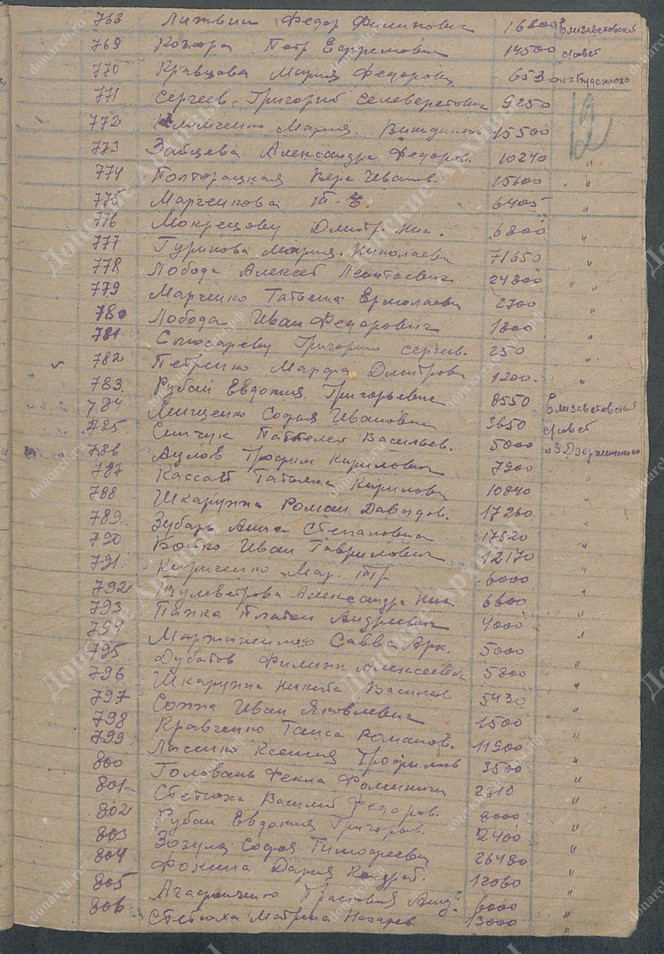 768 Литвин Федор Филипович 16800 Елизаветовский
769 Козора Петр Ефремович 14500 с/совет
770 Кравцова Мария Федоровн 653
771 Сергеев Григорий Селеверстович 9250
12
772 Клименко Мария 15500
773 Зайцева Александра Федоров. 10240 "
774 Полторацкая Вера Иванов. 15600 "
775 Марченкова 6405 "
776 Мокрецову Дмитр. Ник. 6800 "
777 Гурикова Мария Николаевн 71650 "
778 Лобода Алексей Леонтьевич 24800 "
779 Марченко Татьяна Ермолаевн 2700 "
780 Лобода Иван Федорович 1800 "
781 Слюсареву Григорию Сергеев. 250 "
782 Петренко Марфа Дмитровн 1200. "
783 Рубай Евдокия Григорьевна 8550 Елизаветовский
784 Лещенко Софья Ивановна 3650 с/совет
785 Сенчук Пантелей Васильев. 5000 Дзержинского
786 Аулов Трофим Кирилович 7900
787 Кассай Татьяна Кириловн 10840 "
788 Шкарупка Роман Давыдов. 17260 "
789 Зубарь Анна Степановна 17620 "
790 Бойко Иван Гаврилович 12170 "
791 Кириченко Мар. 6000 "
792 Александра Ник 6600 "
793 Пижка Платон Андреевич 4000 "
794 Савва Арк. 5000 "
795 Дубатов Филипп Алексеевич 5800 "
796 Шкарупка Никита Васильев 5430 "
797 Сохка Иван Яковлевич 1500 "
798 Кравченко Таиса Романов. 11900 "
799 Лысенко Ксения Трофимов 3500 "
800 Головань Фекла Фоминич 2310 "
801 Стетюха Василий Федоров. 8000 "
802 Рубай Евдокия Григорьев. 2400 "
803 Зозуля Софья Тимофеевн 26480 "
804 Фокина Дария Кондрат. 12060 "
805 Агафонченко 6000 "
806 Стетюха Матрена Назаров 13000 "